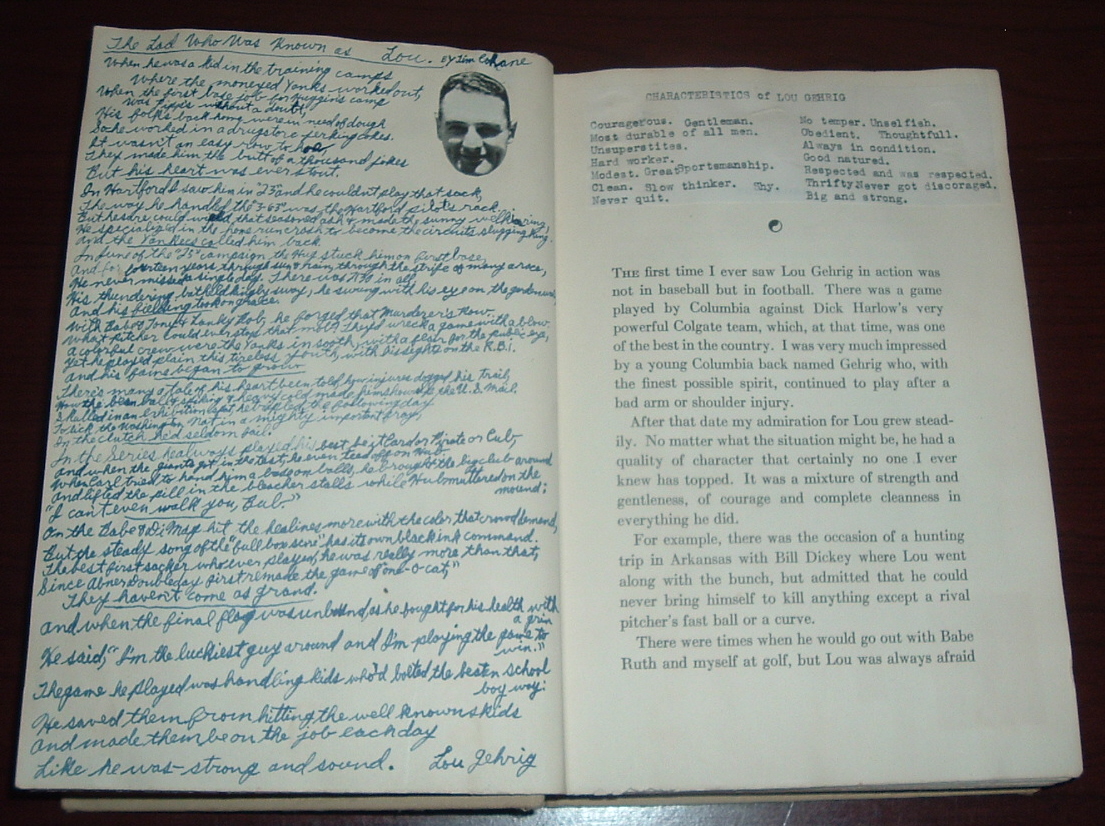 The Lad Who Was Known as Lou. BY Tim Cohane
When he was a kid in the training camps
Where the moneyed Yanks worked out,
When the first base job for Huggins camp
Was Pipp's without a doubt,
His folks back home were in need of dough
So he worked in a drugstore jerking cokes.
It wasn't an easy row to hoe
They made him the butt of a thousand jokes
But his heart was ever stout.
In Hartford I saw him in '23 and he couldn't play that sack,
The way he handled the "3-63" was the Hartford pilot's rack...
But he sure could that seasoned ash & made the sunny welkin ring,
He specialized in the home run crash to become the circuits slugging King.
And the Yankees called him back
In June of the "25" campaign the Hug stuck him on first base,
And for fourteen years, through sun & rain, through the strife of many a race,
He never missed a single day. There was 2130 in all
His thundering bat held mighty sway, he swung with his eye on the garden wall
And his fielding took on grace.
With Babe & Tony & Lanky Bob, he forged that Murderer's Row.
What pitcher could ever stop that mob? They'd wreck a game with a blow.
A colorful crew were the Yanks in sooth, with a flair for the public eye,
Yet he played plain this tireless youth, with his sights on the R.B.I.
And his fame began to grow
There's many a tale of his heart been told, how injuries dogged his trail,
How the bean ball & spiking & heavy cold made him show up like the U.S. Mail.
Skulled in an exhibition tilt, he the following day
To lick the Washington Nats in a mighty important fray,
In the clutch he'd seldom fail.
In the Series he always played his best, be it Card or Pirate or Cub,
And when the giants got in the test, he even teed off on Hub
When Carl tried to hand him a base on balls, he brought the big club around
And lifted the pill in the bleacher stalls while Hub muttered on the
mound:
"I can't even walk you, Bub."
On the Babe & Di Mag hit the healines more with the color that crowd demand,
But the steady song of the "full box score" has its own black ink command.
The best first sacker who ever played, he was really more than that,
Since Abner Doubleday first remade the game of "one-o-cat,"
They haven't come as grand.
And when the final flag was unbound, as he fought for his health with
a grin
He said, "I'm the luckiest guy around and I'm playing the game to
win."
The game he played was handling kids who'd bolted the beaten school
boy way:
He saved them from hitting the well known skids
And made them be on the job each day
Like he was - strong and sound. Lou Gehrig
CHARACTERISTICS of LOU GEHRIG
Courageous. Gentleman.
Most durable of all men.
Unsuperstites.
Hard worker.
Modest. Great Sportsmanship.
Clean. Slow thinker. Shy.
Never quit.
No temper. Unselfish.
Obedient. Thoughtfull.
Always in condition.
Good natured.
Respected and was respected.
Thrifty Never got discoraged.
Big and strong.
THE first time I ever saw Lou Gehrig in action was
not in baseball but in football. There was a game
played by Columbia against Dick Harlow's very
powerful Colgate team, which, at that time, was one
of the best in the country. I was very much impressed
by a young Columbia back named Gehrig who, with
the finest possible spirit, continued to play after a
bad arm or shoulder injury.
After that date my admiration for Lou grew stead-
ily. No matter what the situation might be, he had a
quality of character that certainly no one I ever
knew has topped. It was a mixture of strength and
gentleness, of courage and complete cleanness in
everything he did.
For example, there was the occasion of a hunting
trip in Arkansas with Bill Dickey where Lou went
along with the bunch, but admitted that he could
never bring himself to kill anything except a rival
pitcher's fast ball or a curve.
There were times when he would go out with Babe
Ruth and myself at golf, but Lou was always afraid